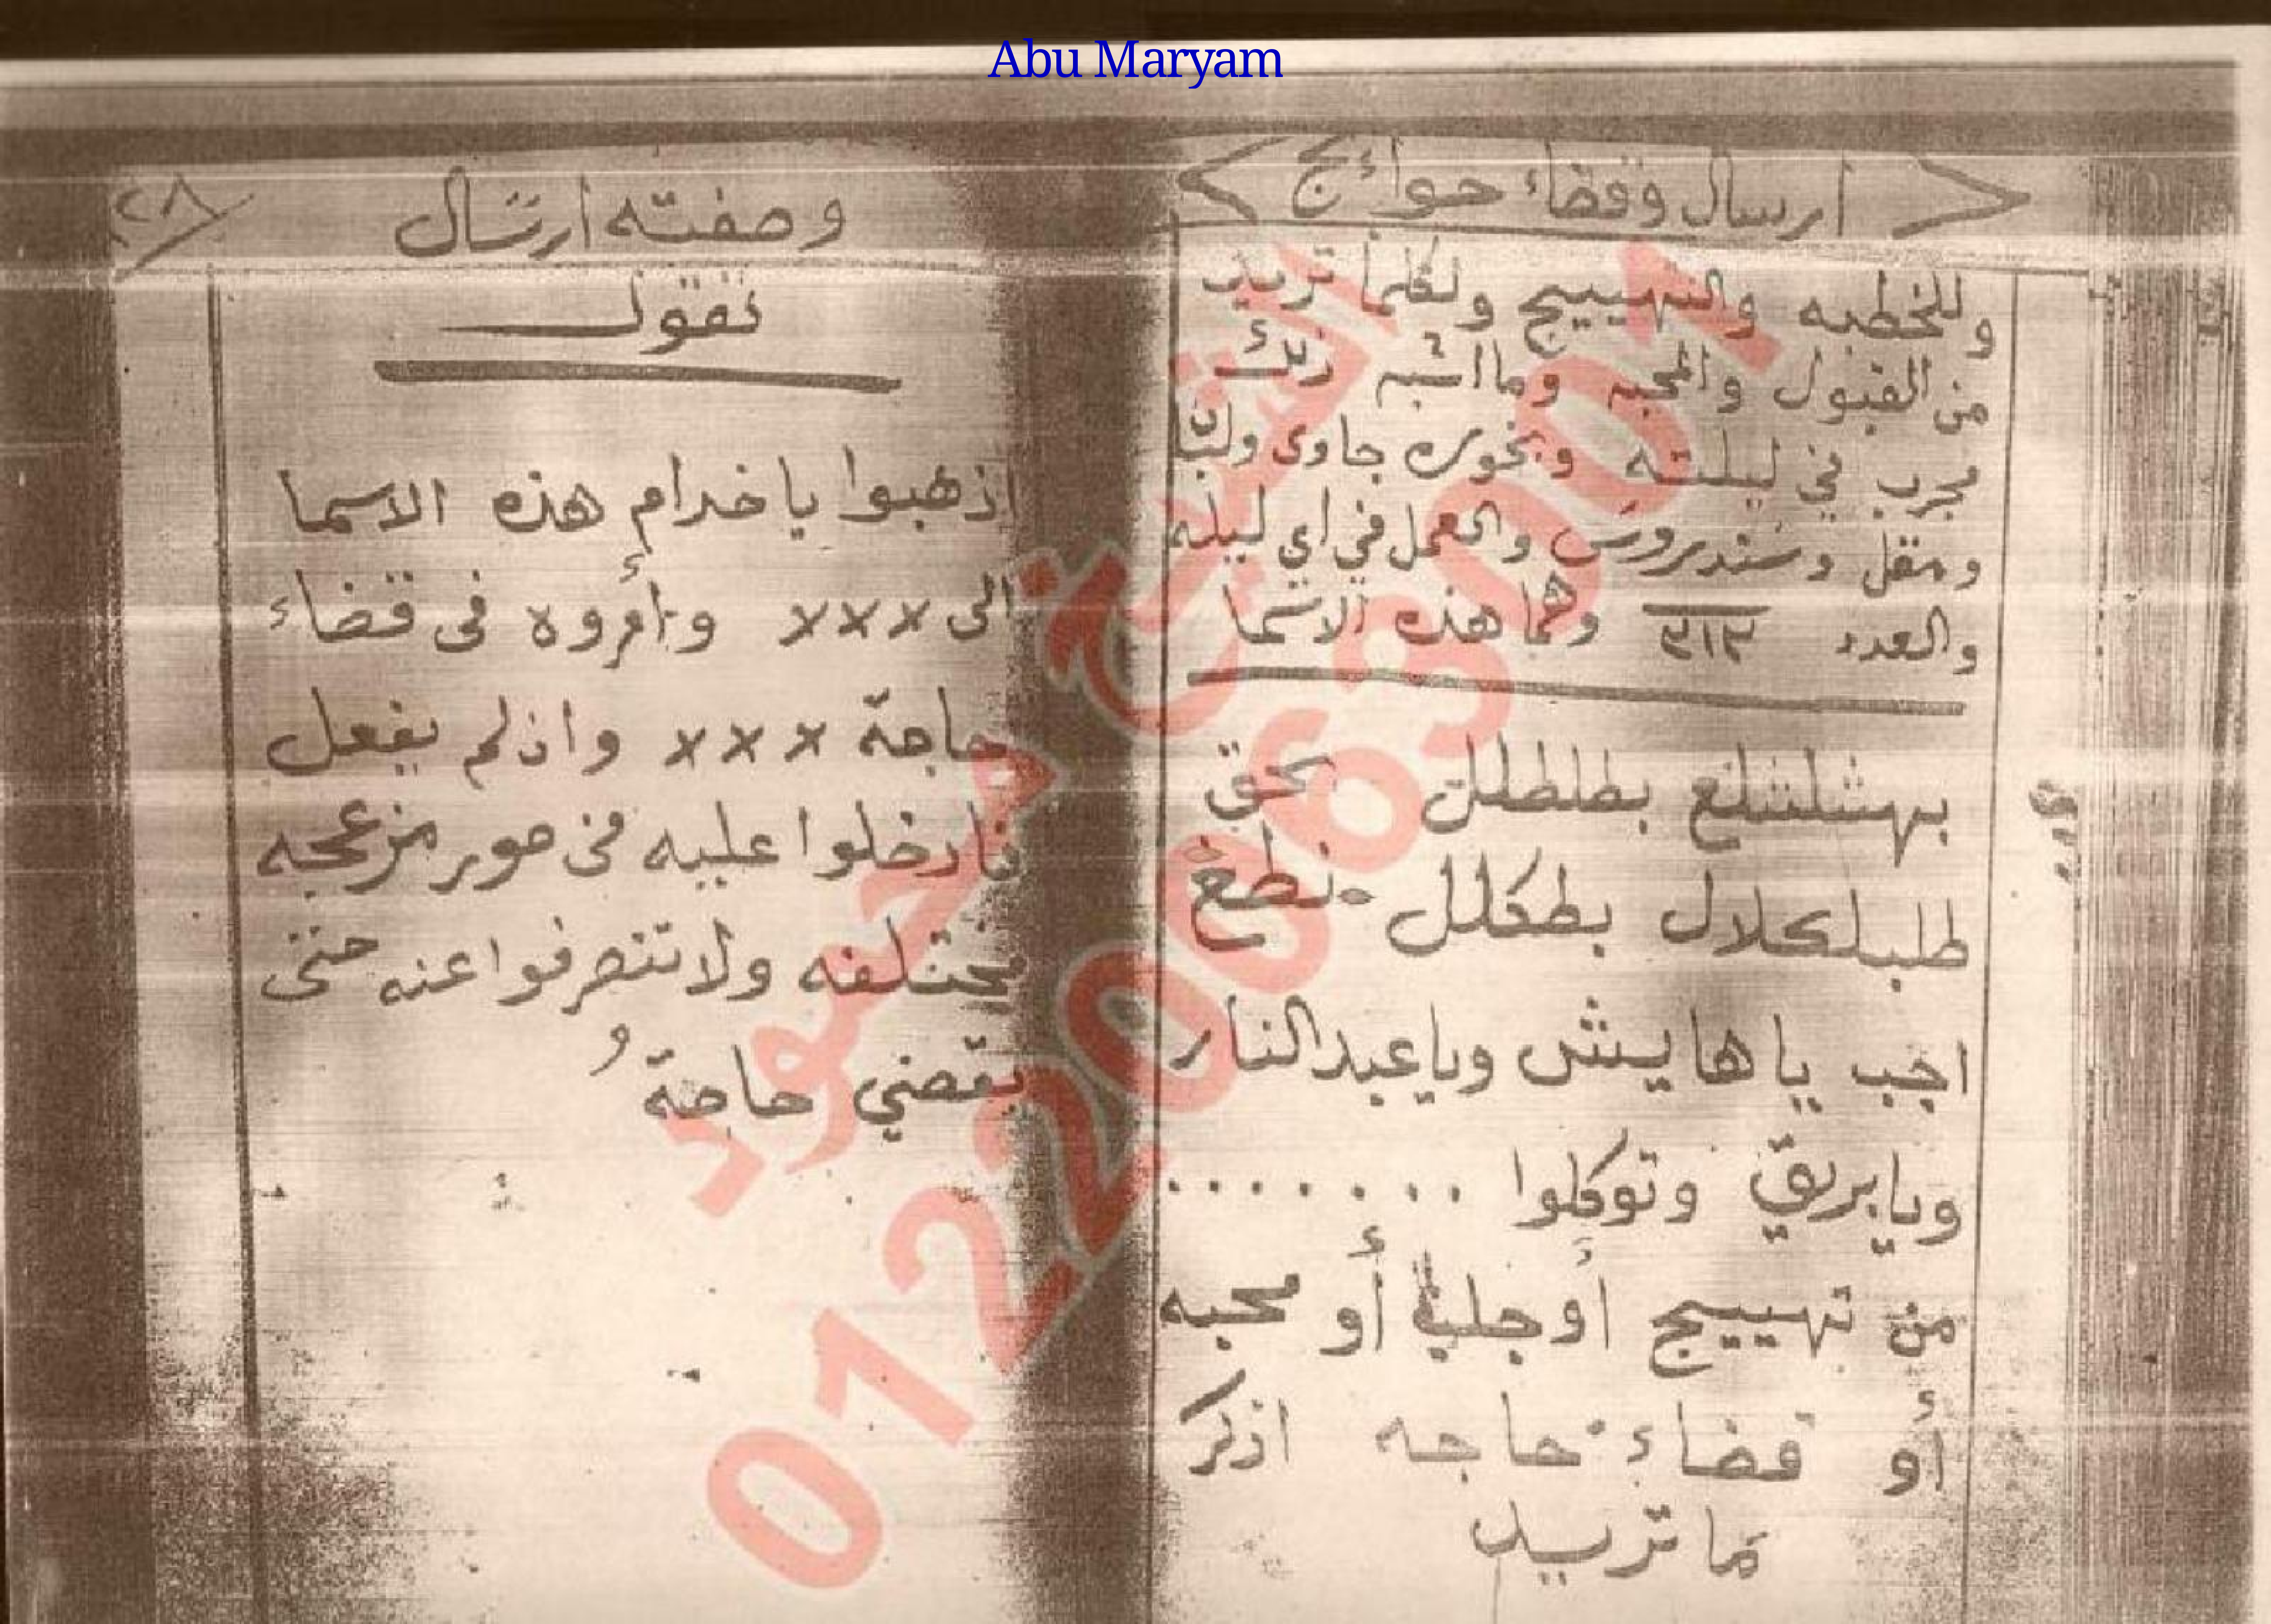 Abu Maryam
ارسال وقضاء حوائج
وللخطبه والتهييج ولكلما تريد
من القبول والمحبه وما اشبه ذلك
مجرب في ليلته وبخوره جاوى ولبان
ومقل وسندروس والعمل في اي ليله
والعدد ٣١٣ وهما هذه الاسما
بهشلشلغ بطلطلل بحق
طلبلكلال بطكلل نطغ
اجب يا هايش ويا عبد النار
ويا بريق وتوكلوا ........
من تهييج أو جلب أو محبه
أو قضاء حاجه اذكر
ما تريد
وصفته ارسال
٢٨
تقول
اذهبوا يا خدام هذه الاسما
الى ××× وأمروه فى قضاء
حاجة ××× واذ لم يفعل
فادخلوا عليه فى صور مزعجه
مختلفه ولا تنصرفوا عنه حتى
يقضي حاجة
الشيخ محمود
01220063901